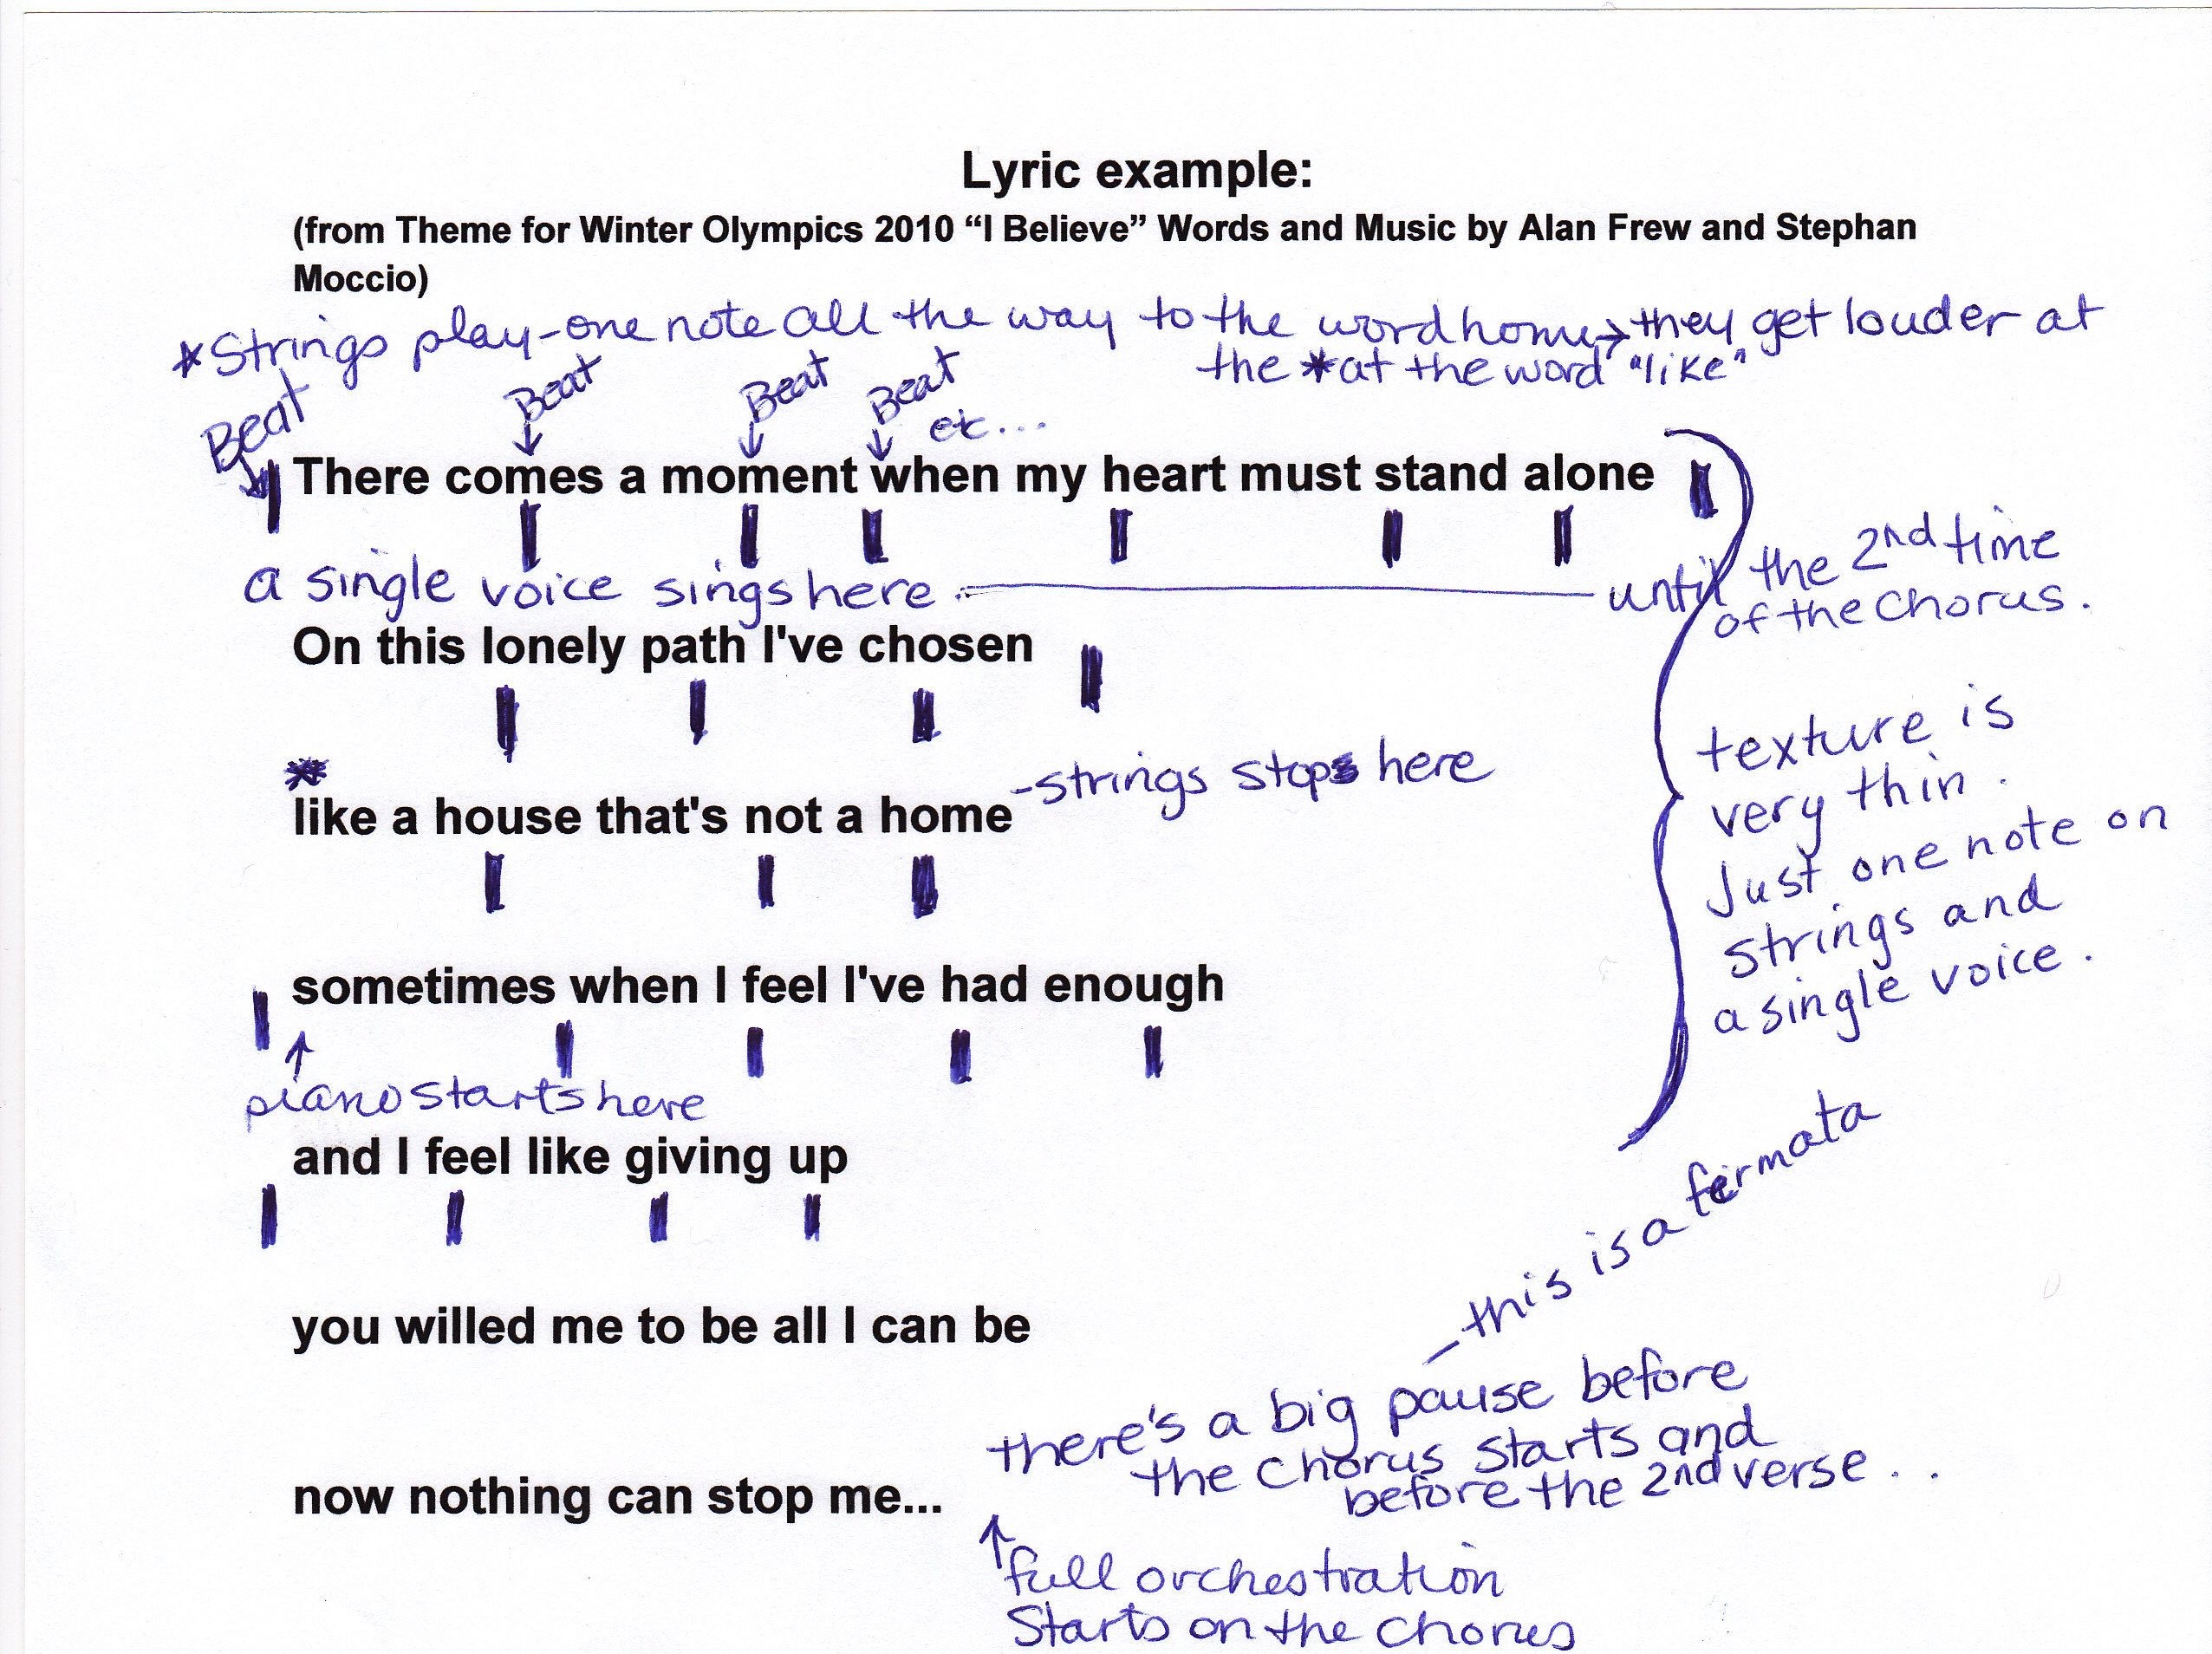 Lyric example:
(from Theme for Winter Olympics 2010 “I Believe” Words and Music by Alan Frew and Stephan
Moccio)
*Strings play-one note all the way to the word home→they get louder at
the *at the word "like"
Beat Beat Beat Beat
etc...
There comes a moment when my heart must stand alone
a single voice sings here until the 2nd time
of the chorus.
On this lonely path I've chosen
texture is
very thin.
Just one note on
strings and
a single voice.
*
-strings stops here
like a house that's not a home
sometimes when I feel I've had enough
↑
piano starts here
and I feel like giving up
you willed me to be all I can be
-this is a fermata
there's a big pause before
the chorus starts and
before the 2nd verse...
now nothing can stop me...
↑
full orchestration
Starts on the chorus